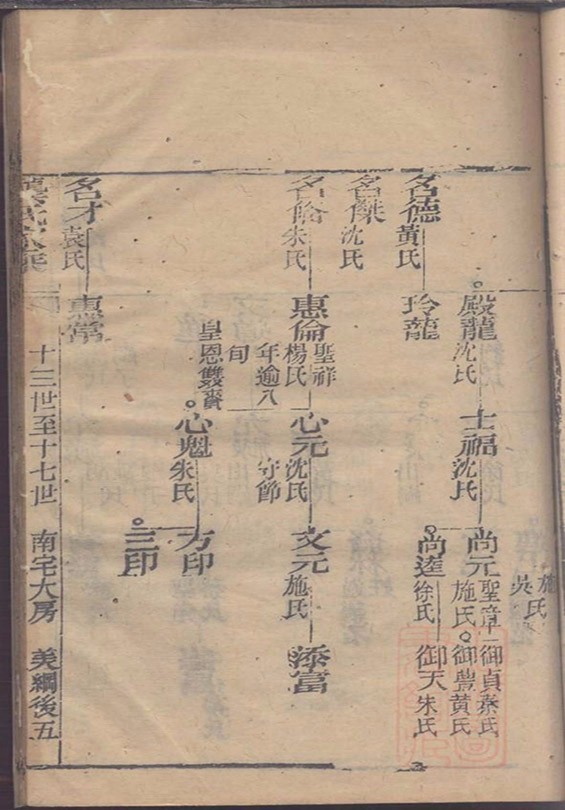 施氏
吳氏
殿龍沈氏
士福沈氏
尚元聖章施氏
御貞秦氏
御豐黃氏
名德黃氏
玲龍
尚達徐氏
御天朱氏
名傑沈氏
名倫朱氏
惠倫聖祥楊氏年逾八旬
皇恩雙賚
心元沈氏守節
文元施氏
添富
心魁朱氏
方印
三印
名才袁氏
惠常
十三世至十七世
南宅大房
美綱後五